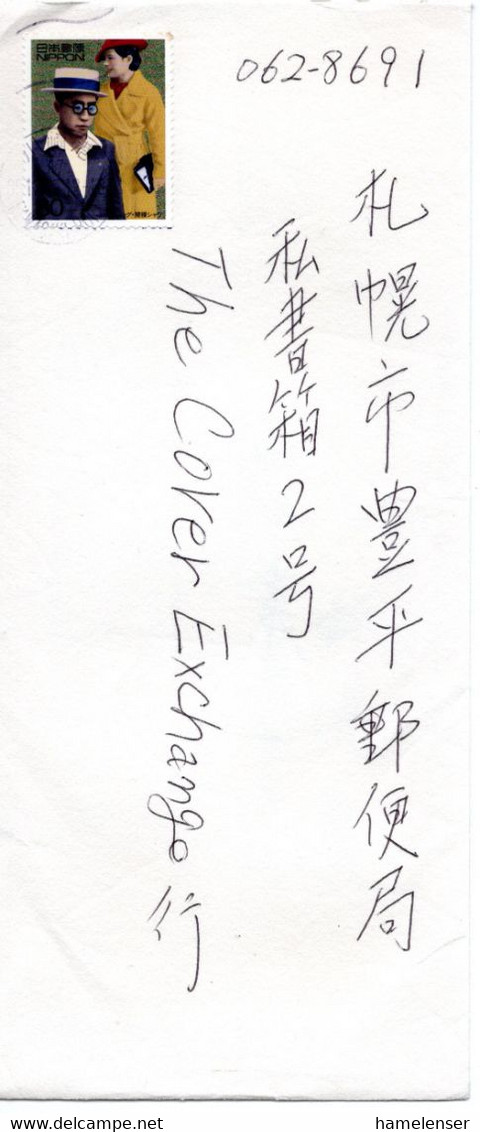 062-8691
札幌市豊平郵便局
私書箱2号
The Cover Exchange 行
日本郵便
NIPPON
hamelenser